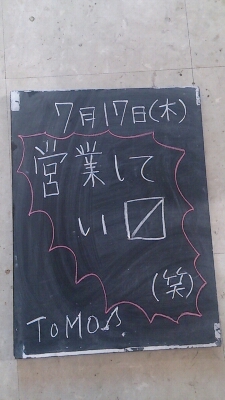 7月17日(木)
営業して
い〼
(笑)
TOMO♪